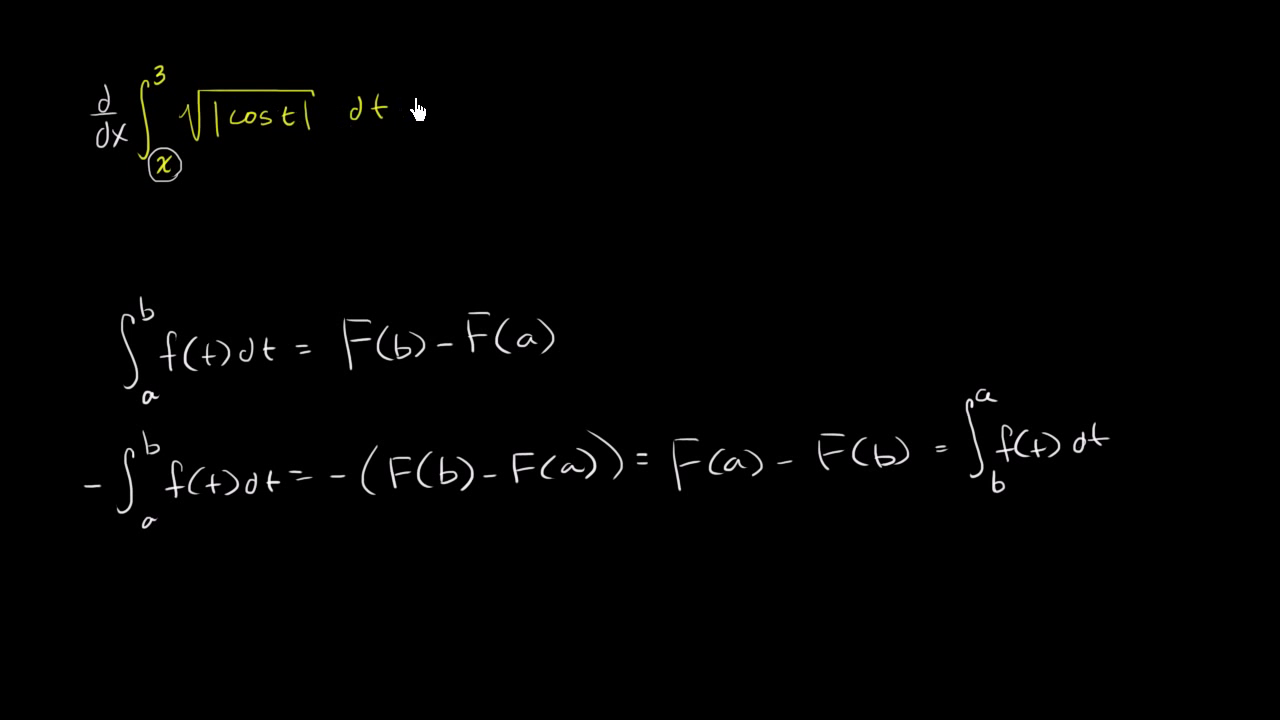 d/dx ∫_x^3 √|cos t| dt
∫_a^b f(t)dt = F(b) - F(a)
- ∫_a^b f(t)dt = - (F(b) - F(a)) = F(a) - F(b) = ∫_b^a f(t) dt